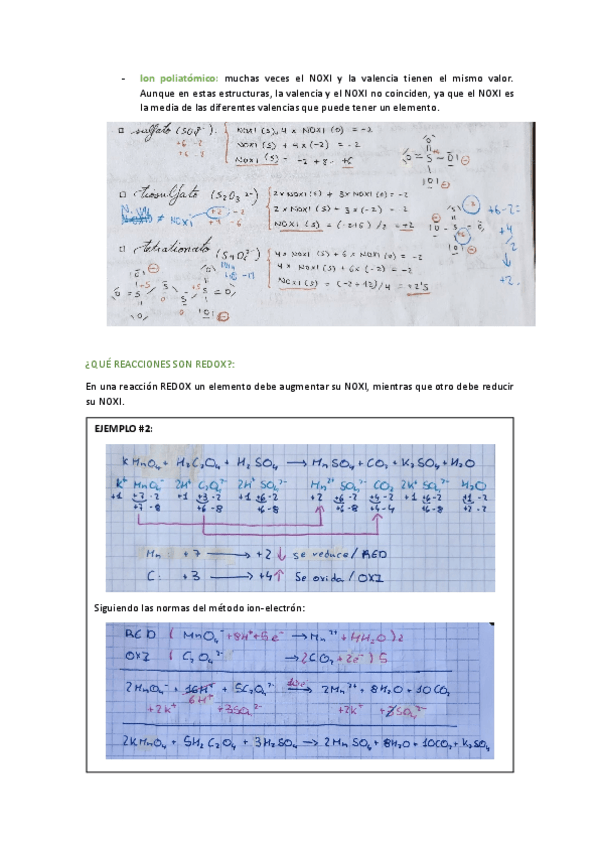 - Ion poliatómico: muchas veces el NOXI y la valencia tienen el mismo valor.
Aunque en estas estructuras, la valencia y el NOXI no coinciden, ya que el NOXI es
la media de las diferentes valencias que puede tener un elemento.
sulfato (SO₄²⁻)
+6 -2
+6 -8
NOXI (S) + 4 x NOXI (O) = -2
NOXI (S) + 4 x (-2) = -2
NOXI (S) = -2 + 8 = +6
tiosulfato (S₂O₃²⁻)
≠ NOXI
2 x NOXI (S) + 3 x NOXI (O) = -2
2 x NOXI (S) + 3 x (-2) = -2
+6 -2 =
+4
/2
+2
(S₄O₆²⁻)
4 x NOXI (S) + 6 x NOXI (O) = -2
4 x NOXI (S) + 6 x (-2) = -2
NOXI (S) = (-2+12)/4 = +2'5
¿QUÉ REACCIONES SON REDOX?:
En una reacción REDOX un elemento debe augmentar su NOXI, mientras que otro debe reducir
su NOXI.
EJEMPLO #2:
KMnO₄ + H₂C₂O₄ + H₂SO₄ → MnSO₄ + CO₂ + K₂SO₄ + H₂O
K⁺ MnO₄⁻ 2H⁺ C₂O₄²⁻ 2H⁺ SO₄²⁻ Mn²⁺ SO₄²⁻ CO₂ 2K⁺ SO₄²⁻ H₂O
+1 +7 -2 +1 +3 -2 +1 +6 -2 +2 +6 -2 +4 -2 +1 +6 -2 +1 -2
+7 -8 +6 -8 +6 -8 +6 -8 +4 -4 +6 -8 +2 -2
Mn: +7 → +2 ↓ se reduce / RED
C: +3 → +4 ↑ Se oxida / OXI
Siguiendo las normas del método ion-electrón:
RED ( MnO₄⁻ + 8H⁺ + 5e⁻ → Mn²⁺ + 4H₂O ) 2
OXI ( C₂O₄²⁻ → 2CO₂ + 2e⁻ ) 5
2MnO₄⁻ + 16H⁺ + 5C₂O₄²⁻ → 2Mn²⁺ + 8H₂O + 10CO₂
6H⁺
+2K⁺ +3SO₄²⁻ +2K⁺
2KMnO₄ + 5H₂C₂O₄ + 3H₂SO₄ → 2MnSO₄ + 8H₂O + 10CO₂ + K₂SO₄